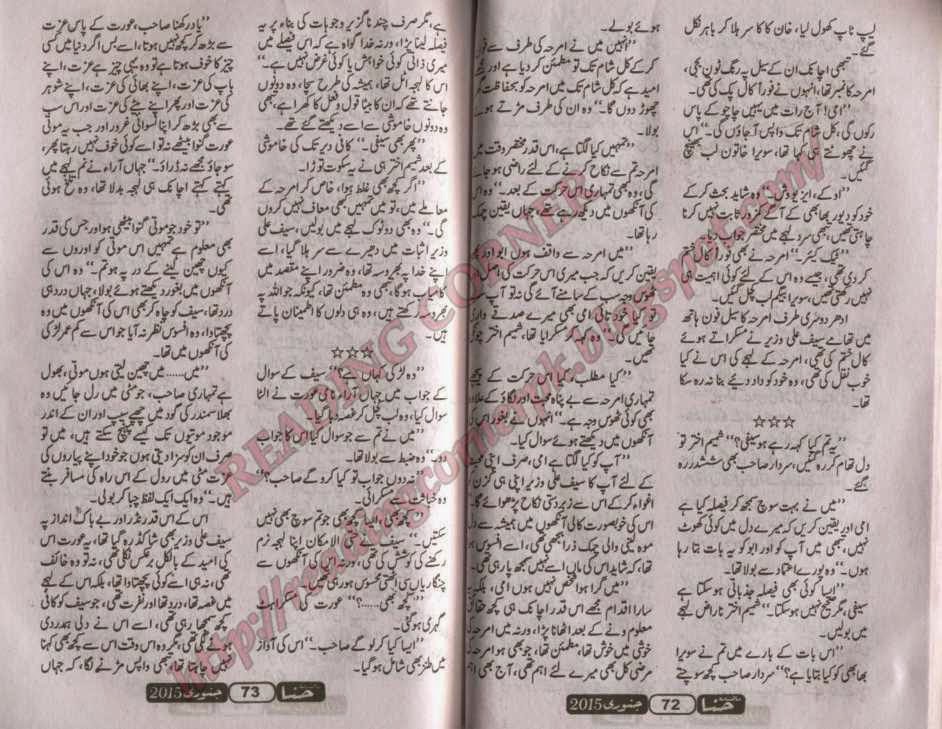 لیپ ٹاپ کھول لیا، خان کاکا سر ہلا کر باہر نکل
گئے۔
تبھی اچانک ان کے سیل پہ رنگ ٹون بجی،
امرحہ کا نمبر تھا، انہوں نے فوراً کال پک کی تھی۔
”امی! آج رات میں یہیں چاچو کے پاس
رکوں گی، کل شام تک واپس آ جاؤں گی۔“ اس
نے چھوٹتے ہی کہا تھا، سویرا خاتون لب بھینچ
گئیں۔
”اوکے، ایز یو وش۔“ وہ شاید بحث کر کے
خود کو دیور بھابھی کے آگے کمزور ثابت نہیں کرنا
چاہتی تھیں، تبھی سرد لہجے میں مختصر جواب دیا۔
”ٹیک کیئر۔“ امرحہ نے بھی فوراً کال ختم
کر دی تھی، جیسے وہ اس کے لئے کوئی اہمیت ہی
نہیں رکھتیں، سویرا بیگم لب کچل گئیں۔
ادھر دوسری طرف امرحہ کا سیل فون ہاتھ
میں تھامے سیف علی وزیر نے مسکراتے ہوئے
کال ختم کی تھی، امرحہ کے لہجے کی اس نے کیا
خوب نقل کی تھی، وہ خود کو داد دیئے بنا نہ رہ سکا
تھا۔
☆☆☆
”یہ تم کیا کہہ رہے ہو سیفی؟“ شمیم اختر تو
دل تھام کر رہ گئیں، سردار صاحب بھی ششدر رہ
گئے۔
”میں نے بہت سوچ سمجھ کر فیصلہ کیا ہے
امی اور یقین کریں کہ میرے دل میں کوئی کھوٹ
نہیں، بھی میں آپ کو اور ابو کو یہ بات بتا رہا
ہوں۔“ وہ پورے اعتماد سے بولا تھا۔
”ایسا کوئی بھی فیصلہ جذباتی ہو سکتا ہے
سیفی، مگر صحیح نہیں ہو سکتا۔“ شمیم اختر ناراض لہجے
میں بولیں۔
”اس بات کے بارے میں تم نے سویرا
بھابھی کو کیا بتایا ہے؟“ سردار صاحب کچھ سوچتے
ہوئے بولے۔
”انہیں میں نے امرحہ کی طرف سے فون
کر کے کل شام تک تو مطمئن کر دیا ہے اور
امید ہے کل شام تک میں امرحہ کو بحفاظت
چھوڑ دوں گا۔“ وہ ان کی طرف مڑتے ہوئے
بولا۔
”تمہیں کیا لگتا ہے، اس قدر مختصر وقت میں
امرحہ تم سے نکاح کرنے کے لئے راضی ہو جائے
گی، وہ بھی تمہاری اس حرکت کے بعد۔“ وہ اس
کی آنکھوں میں دیکھ رہے تھے، جہاں یقین چمک
رہا تھا۔
”میں امرحہ سے واقف ہوں ابو اور پھر
یقین کریں کہ جب میری اس حرکت کی اصل
ٹھوس وجہ سب کے سامنے آئے گی نہ تو آپ
فوراً کیا خود تائی امی بھی میرے صدقے واری
جائیں گی۔“ وہ کہہ کر مسکرایا تھا، شمیم اختر چونکی
تھیں۔
”کیا مطلب، کیا اس حرکت کے پیچھے
تمہاری امرحہ سے بے پناہ محبت اور لگاؤ کے علاوہ
بھی کوئی ٹھوس وجہ ہے۔“ انہوں نے بغور اس کی
آنکھوں میں دیکھتے ہوئے سوال کیا۔
”آپ کو کیا لگتا ہے امی، صرف اپنی محبت
کے لئے آپ کا سیف علی وزیر اپنی ہی کزن کو
اغواء کر کے اس سے زبردستی نکاح پڑھوائے گا۔“
اس کی خوبصورت کالی آنکھوں میں ہمیشہ سے
موہ لینی والی چمک ذرا بجھی تھی، اسے افسوس ہوا
تھا، کہ شاید اس کی ماں اسے نہیں سمجھ پا رہی تھی۔
”میں گرا ہوا شخص نہیں ہوں امی، بلکہ یہ
سارا اقدام مجھے اس قدر اچانک ہی کچھ حقائق
معلوم ہونے کے بعد اٹھانا پڑا، ورنہ میں امرحہ کی
خوشی میں خوش تھا، مطمئن تھا، جو بھی ہو امرحہ کی
مرضی کل بھی میرے لئے اہم تھی، آج بھی اہم
ماہنامہ حنا 72 جنوری 2015
ہے، مگر صرف چند ناگزیر وجوہات کی بناء پر یہ
فیصلہ لینا پڑا، ورنہ خدا گواہ ہے کہ اس فیصلے میں
میری ذاتی کوئی خواہش یا کوئی غرض نہیں ہے۔“
اس کا لہجہ اٹل تھا، ہمیشہ کی طرح سچا، وہ دونوں
جانتے تھے کہ ان کا بیٹا قول و فعل کا کھرا ہے، بھی
وہ دونوں خاموشی سے اسے دیکھتے گئے تھے۔
”پھر بھی سیفی۔“ کافی دیر تک کی خاموشی
کے بعد شمیم اختر ہی نے سکوت توڑا۔
”اگر کچھ بھی غلط ہوا، خاص کر امرحہ کے
معاملے میں، تو میں تمہیں کبھی معاف نہیں کروں
گی۔“ وہ بھی دوٹوک لہجے میں بولیں، سیف علی
وزیر اثبات میں دھیرے سے سر ہلا گیا، اسے
اپنے خدا پہ بھروسہ تھا، وہ ضرور اپنے مقصد میں
کامیاب ہوگا، بھی وہ مطمئن تھا، کیونکہ جو اللہ پہ
بھروسہ رکھتے ہیں، وہ ہی دلوں کا اطمینان پاتے
ہیں۔
☆☆☆
”وہ لڑکی کہاں ہے؟“ سیف کے سوال
کے جواب میں جہاں آراء نامی عورت نے الٹا
سوال کیا، وہ لب کچل کر غصہ دبا گیا۔
”میں نے تم سے جو سوال کیا اس کا جواب
دو۔“ وہ ضبط سے بولا تھا۔
”نہ دوں جواب تو کیا کرو گے صاحب؟“
وہ خباثت سے مسکرائی۔
”کچھ بھی، ایسا کچھ بھی جو تم سوچ بھی نہیں
سکتیں۔“ سیف نے حتی الامکان اپنا لہجہ نرم
رکھنے کی کوشش کی تھی، ورنہ اس کی آنکھوں سے
چنگاریاں ہی اٹھتی محسوس ہو رہی تھیں۔
”کچھ بھی......؟“ عورت کی مسکراہٹ
گہری ہو گئی۔
”ایسا کیا کر لو گے صاحب۔“ اس کی آواز
میں طنز بھی شامل ہو گیا۔
”یاد رکھنا صاحب، عورت کے پاس عزت
سے بڑھ کر کچھ نہیں ہوتا، اسے بس اگر دنیا میں کسی
چیز کا خوف ہوتا ہے تو وہ یہی چیز ہے عزت، اپنے
باپ کی عزت، اپنے بھائی کی عزت، اپنے شوہر
کی عزت اور پھر اپنے بیٹے کی عزت اور اس سب
سے بھی بڑھ کر اپنا نسوانی غرور اور جب یہ موتی
عورت گنوا بیٹھے تو اسے کوئی خوف نہیں رہتا پھر،
سو جاؤ مجھے نہ ڈراؤ۔“ جہاں آراء نے نرم لہجے میں
کہتے کہتے اچانک ہی لہجہ بدلا تھا، وہ تلخ ہوئی
تھی۔
”تو خود جو موتی گنوا بیٹھی ہو اور جس کی قدر
بھی معلوم ہے تمہیں اس موتی کو اوروں سے
کیوں چھین لینے کے درپہ ہو تم۔“ وہ اس کی
آنکھوں میں بغور دیکھتے ہوئے بولا، جہاں درد ہی
درد تھا، سیف کو چاہ کر بھی اس کی آنکھوں میں وہ
پچھتاوا، وہ افسوس نظر نہ آیا جو اس سے کم عمر لڑکی
کی آنکھوں میں تھا۔
”میں...... میں چھین لیتی ہوں موتی، بھول
ہے تمہاری صاحب، جو مٹی میں رل جائیں وہ
بھلا سمندر کی گود میں چھپے سیپ اور ان کے اندر
موجود موتیوں تک کیسے پہنچ سکتے ہیں، میں تو
صرف ان کو سزا دیتی ہوں جو خود اپنے پیاروں کی
عزت مٹی میں رول کے اس راہ کی مسافر بنتے
ہیں۔“ وہ ایک ایک لفظ چبا کر بولی۔
اس کے اس قدر نڈر اور بے باک انداز پہ
سیف علی وزیر بھی شاکڈ رہ گیا تھا، یہ عورت اس
کی امید کے بالکل برعکس نکلی تھی، نہ تو وہ خائف
تھی، نہ ہی اسے کوئی پچھتاوا تھا، بلکہ اس کے لہجے
میں غصہ تھا، درد تھا اور نفرت تھی، جو سیف کو کافی
کچھ سمجھا رہی تھی، اسے اس سے دلی ہمدردی
ہونے لگی تھی، مگر وہ اس وقت اس سے کچھ بھی کہنا
نہیں چاہتا تھا، بھی واپس مڑنے لگا، کہ جہاں
ماہنامہ حنا 73 جنوری 2015
READING CORNER